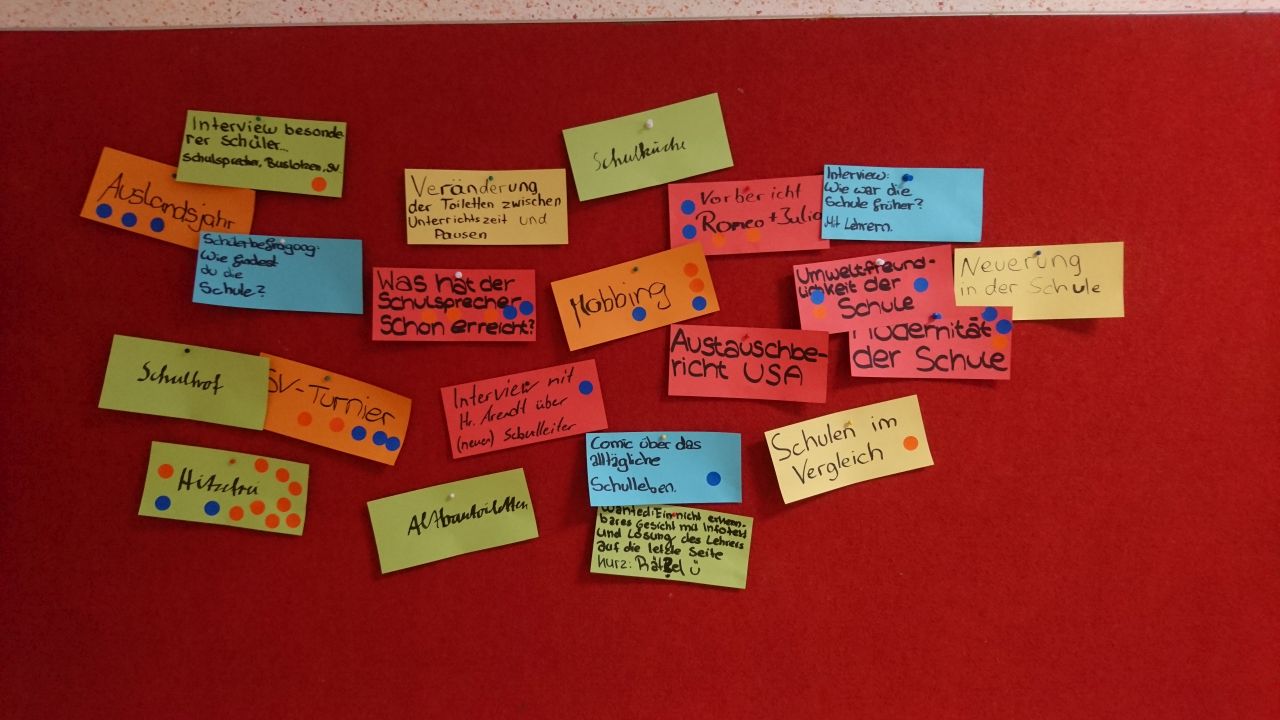 Interview besonde
rer Schüler...
Schulsprecher, Buslotsen, SV...
Auslandsjahr
Schülerbefragung:
Wie findest
du die
Schule?
Veränderung
der Toiletten zwischen
Unterrichtszeit und
Pausen
Schulküche
Vorbericht
Romeo + Julia
Interview:
Wie war die
Schule früher?
Mit Lehrern.
Was hat der
Schulsprecher
Schon erreicht?
Mobbing
Umweltfreund-
lichkeit der
Schule
Neuerung
in der Schule
Modernität
der Schule
Austauschbe-
richt USA
Schulhof
SV-Turnier
Interview mit
Hr. Arendt über
(neuen) Schulleiter
Schulen im
Vergleich
Comic über das
alltägliche
Schulleben.
Hitzefrei
Altbautoiletten
Wanted: Ein nicht erkenn-
bares Gesicht mit Infotext
und Lösung des Lehrers
auf die letzte Seite
kurz: Rätsel ü